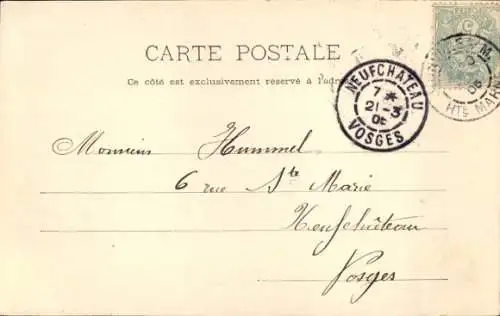 CARTE POSTALE
Ce côté est exclusivement réservé à l'adre
NEUFCHATEAU
7 *
21 - 3
06
VOSGES
HTE MARN
Monsieur Hummel
6 rue Ste Marie
Neufchâteau
Vosges